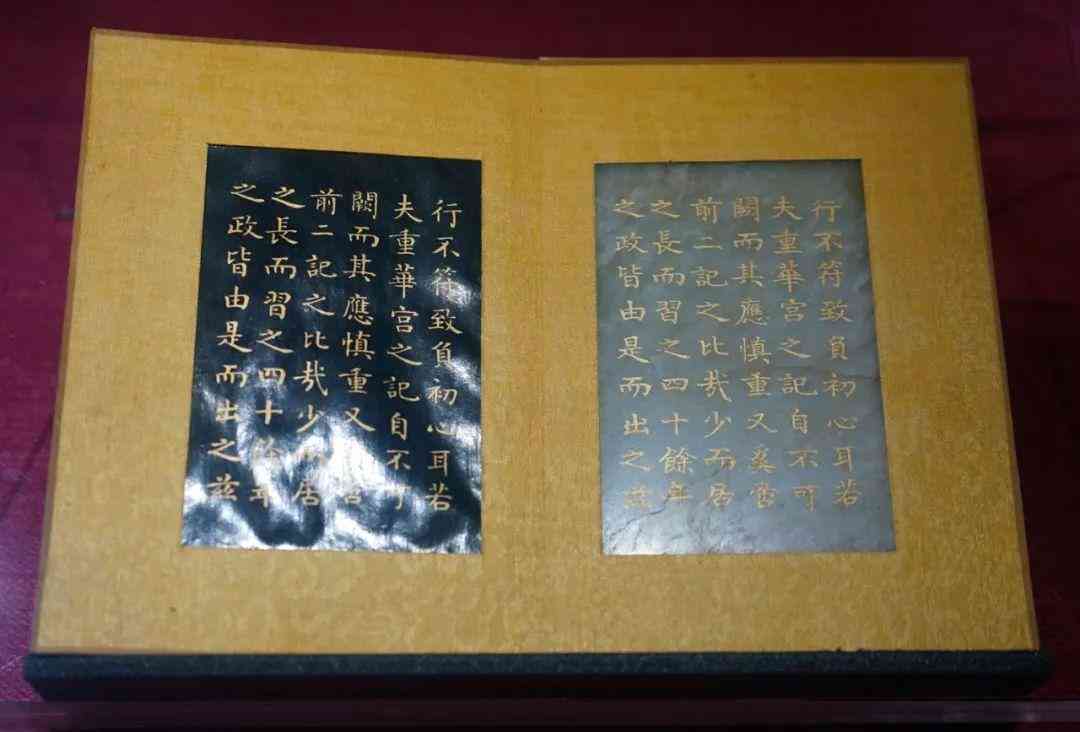 行不符致負初心耳若
夫重華宮之記自不可
闕而其應慎重又奚啻
前二記之比哉少而居
之長而習之四十餘年
之政皆由是而出之茲
行不符致負初心耳若
夫重華宮之記自不可
闕而其應慎重又啻
前二記之比哉少而居
之長而習之四十餘年
之政皆由是而出之茲